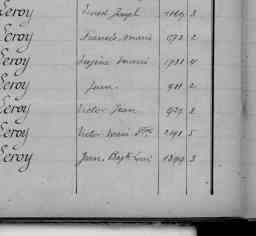 Leroy Ernest Joseph 1169 3
Leroy Francis Marie 1772 2
Leroy Eugène Marie 1731 4
Leroy Jean 911 2
Leroy Victor Jean 2
Leroy Victor Marie 2491 5
Leroy Jean Bapte 1890 3